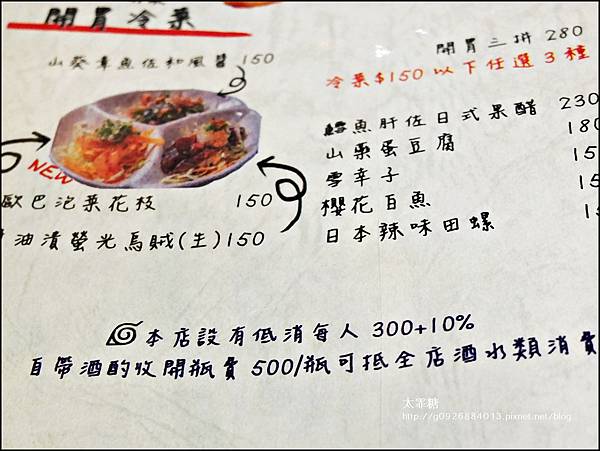 開胃冷菜
山葵章魚佐和風醬 150
NEW
歐巴泡菜花枝 150
油漬螢光烏賊(生)150
開胃三拼 280
冷菜$150以下任選3種
鱈魚肝佐日式果醋 230
山藥蛋豆腐 180
雪辛子 15
櫻花百魚 15
日本辣味田螺 1
本店設有低消每人 300+10%
自帶酒酌收開瓶費 500/瓶可抵全店酒水類消費
太霏糖
http://g0926884013.pixnet.net/blog